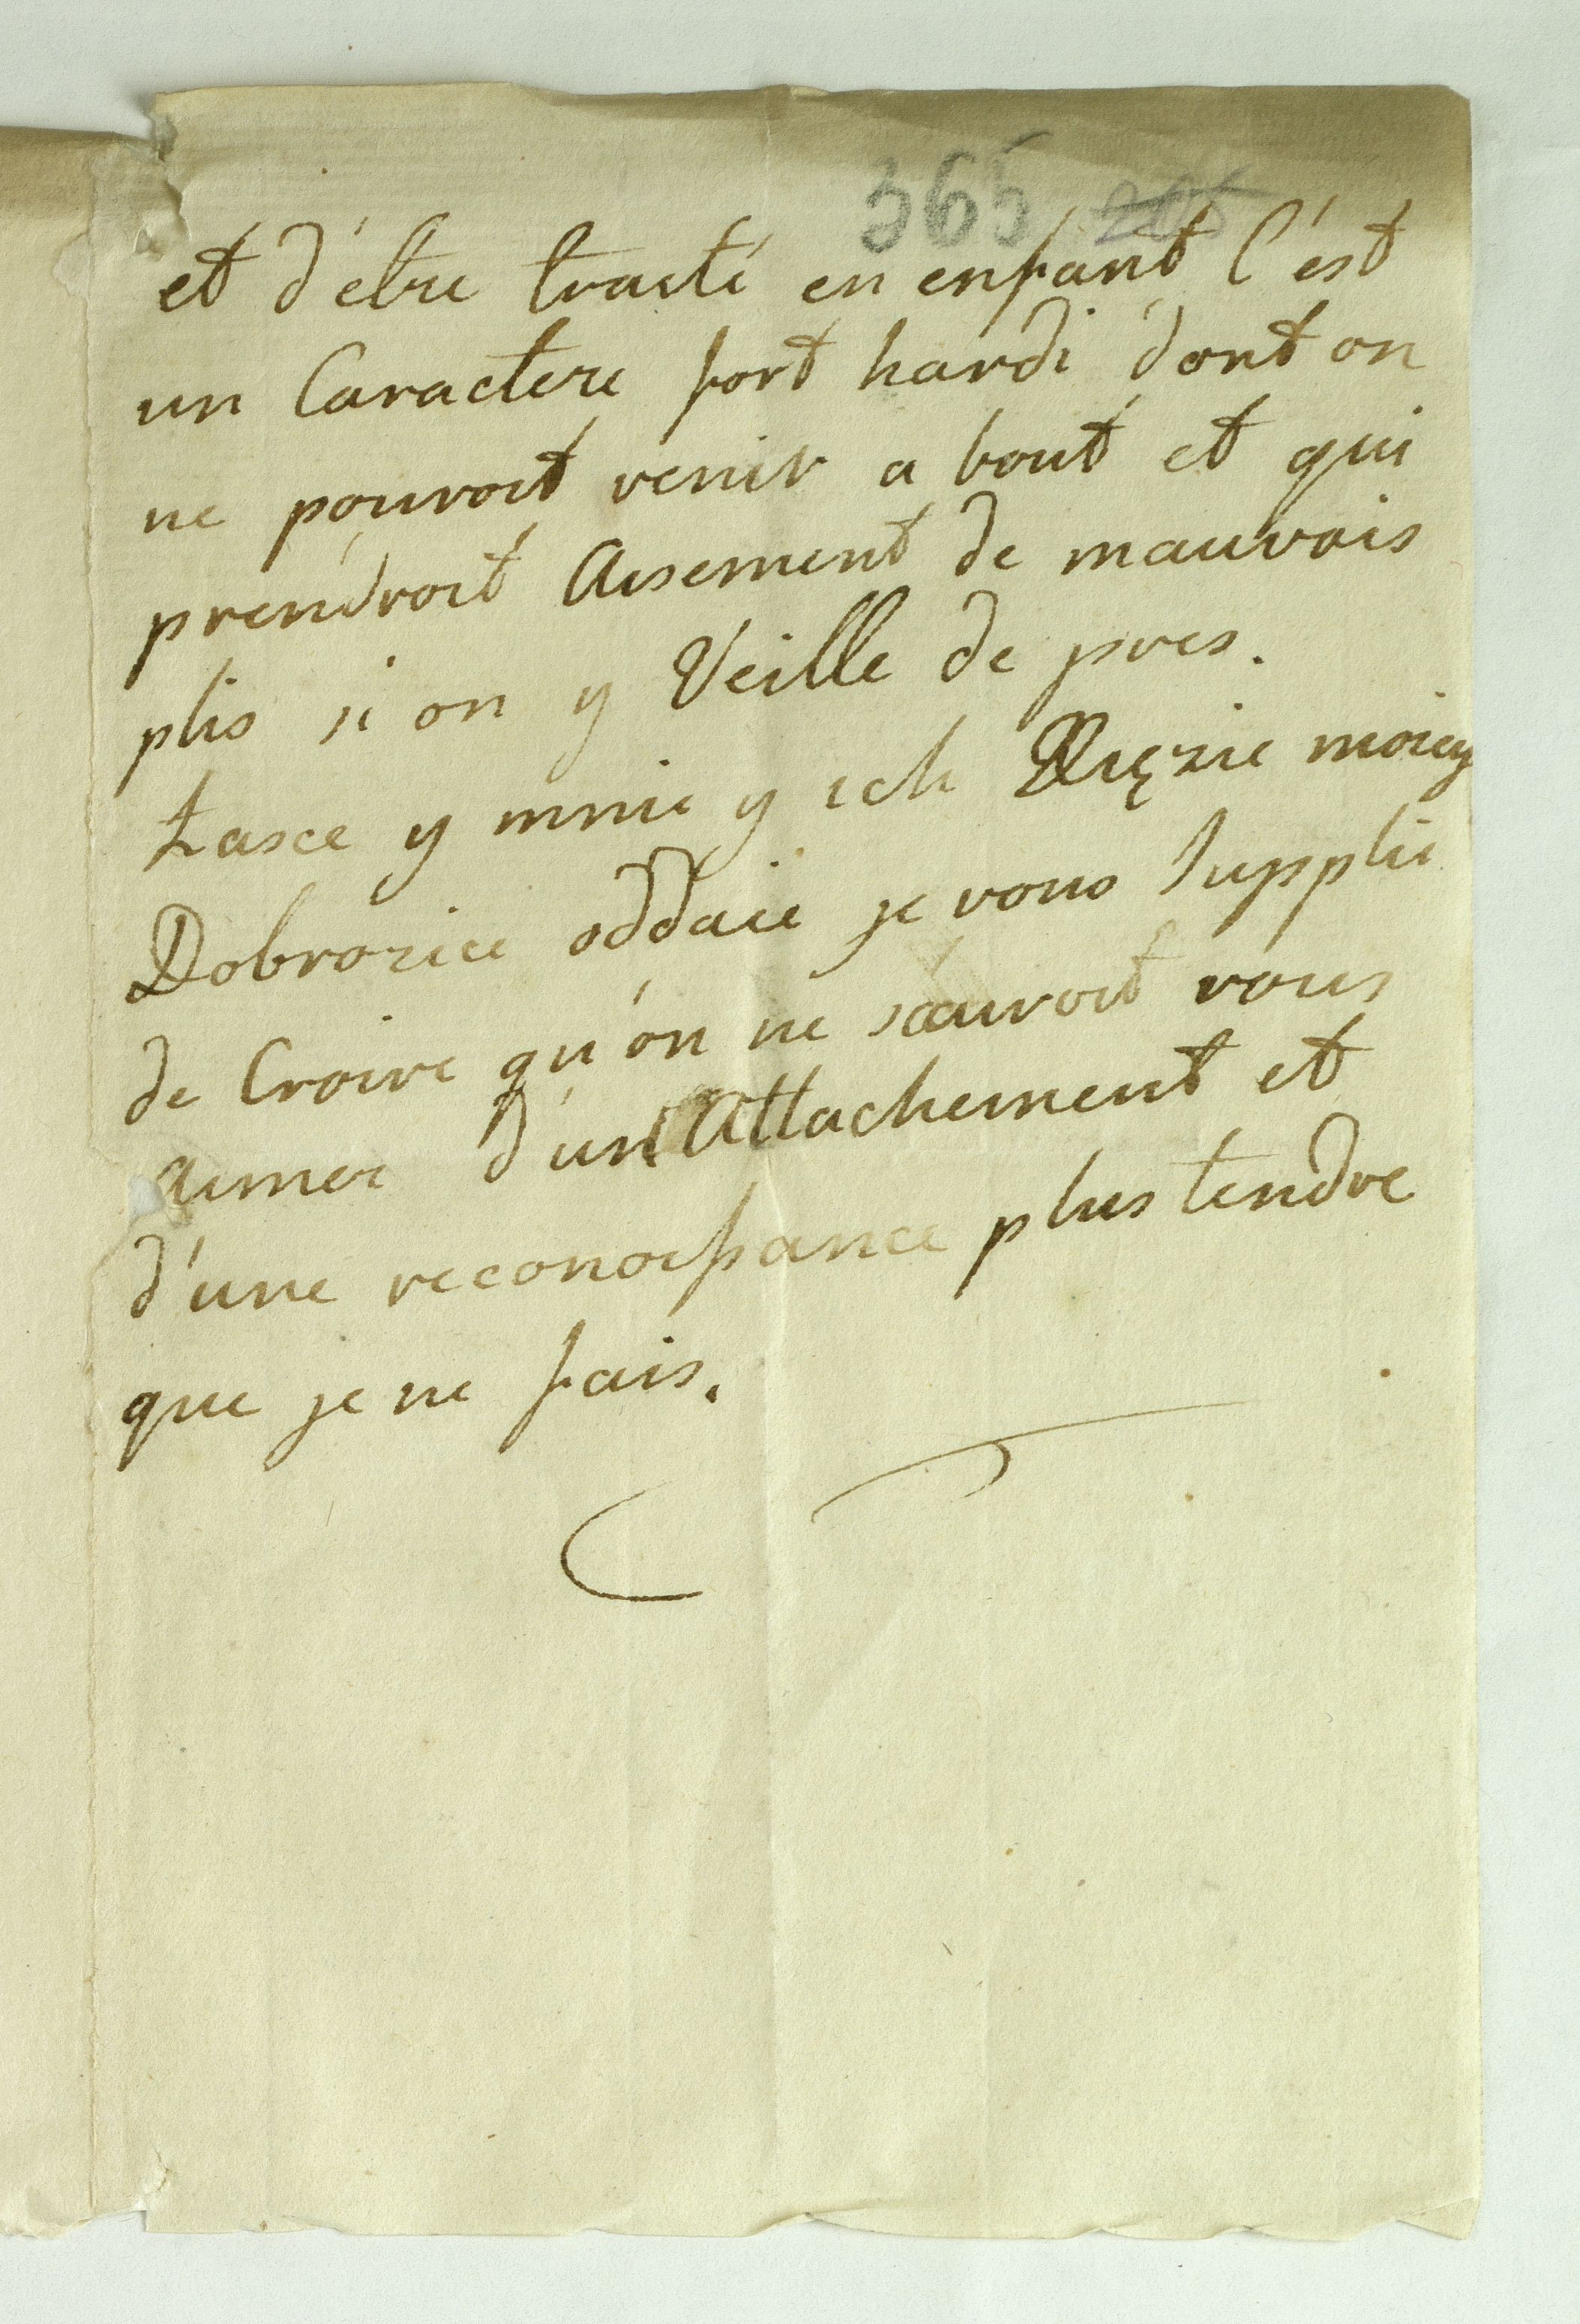 365 205
et d'étre traité en enfant C'est
un Caractere fort hardi dont on
ne pouroit venir a bout et qui
prendroit Aisement de mauvais
plis si on y Veille de pres.
Łasce y mnie y ich Xięzie moiey
Dobrozice oddaie je vous supplie
de Croire qu'on ne sauroit vous
Aimer d'un Attachement et
d'une reconoissance plus tendre
que je ne fais.